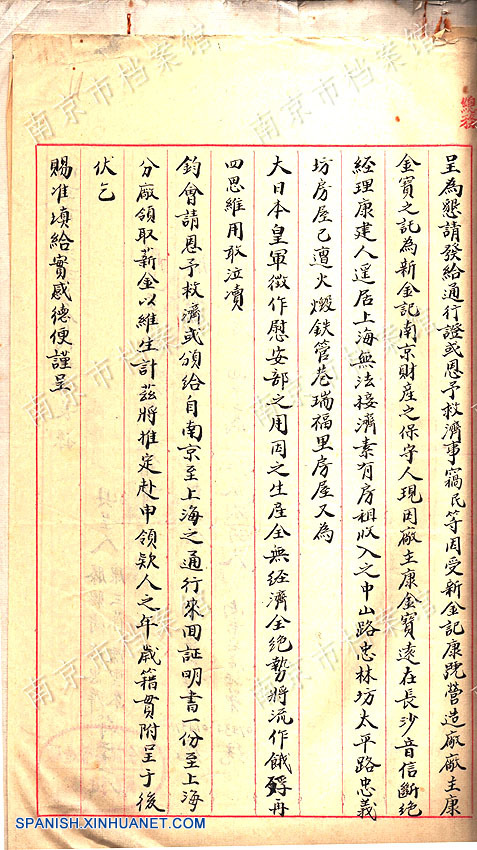 呈為懇請發給通行證或恩予救濟事竊民等因受新金記康號營造廠廠主康
金寶之託為新金記南京財產之保守人現因廠主康金寶遠在長沙音信斷絕
經理康建人逗居上海無法接濟素有房租收入之中山路忠林坊太平路忠義
坊房屋已遭火燬鉄管巷瑞福里房屋又為
大日本皇軍徵作慰安部之用因之生居全無經濟全絕勢將流作餓殍再
四思維用敢泣凟
鈞會請恩予救濟或頒給自南京至上海之通行來回証明書一份至上海
分廠領取薪金以維生計茲將推定赴申領欵人之年歲籍貫附呈于後
伏乞
賜准填給實感德便謹呈
南京市档案馆
南京市档案馆
南京市档案馆
南京市档案馆
南京市档案馆
南京市档案馆
SPANISH.XINHUANET.COM